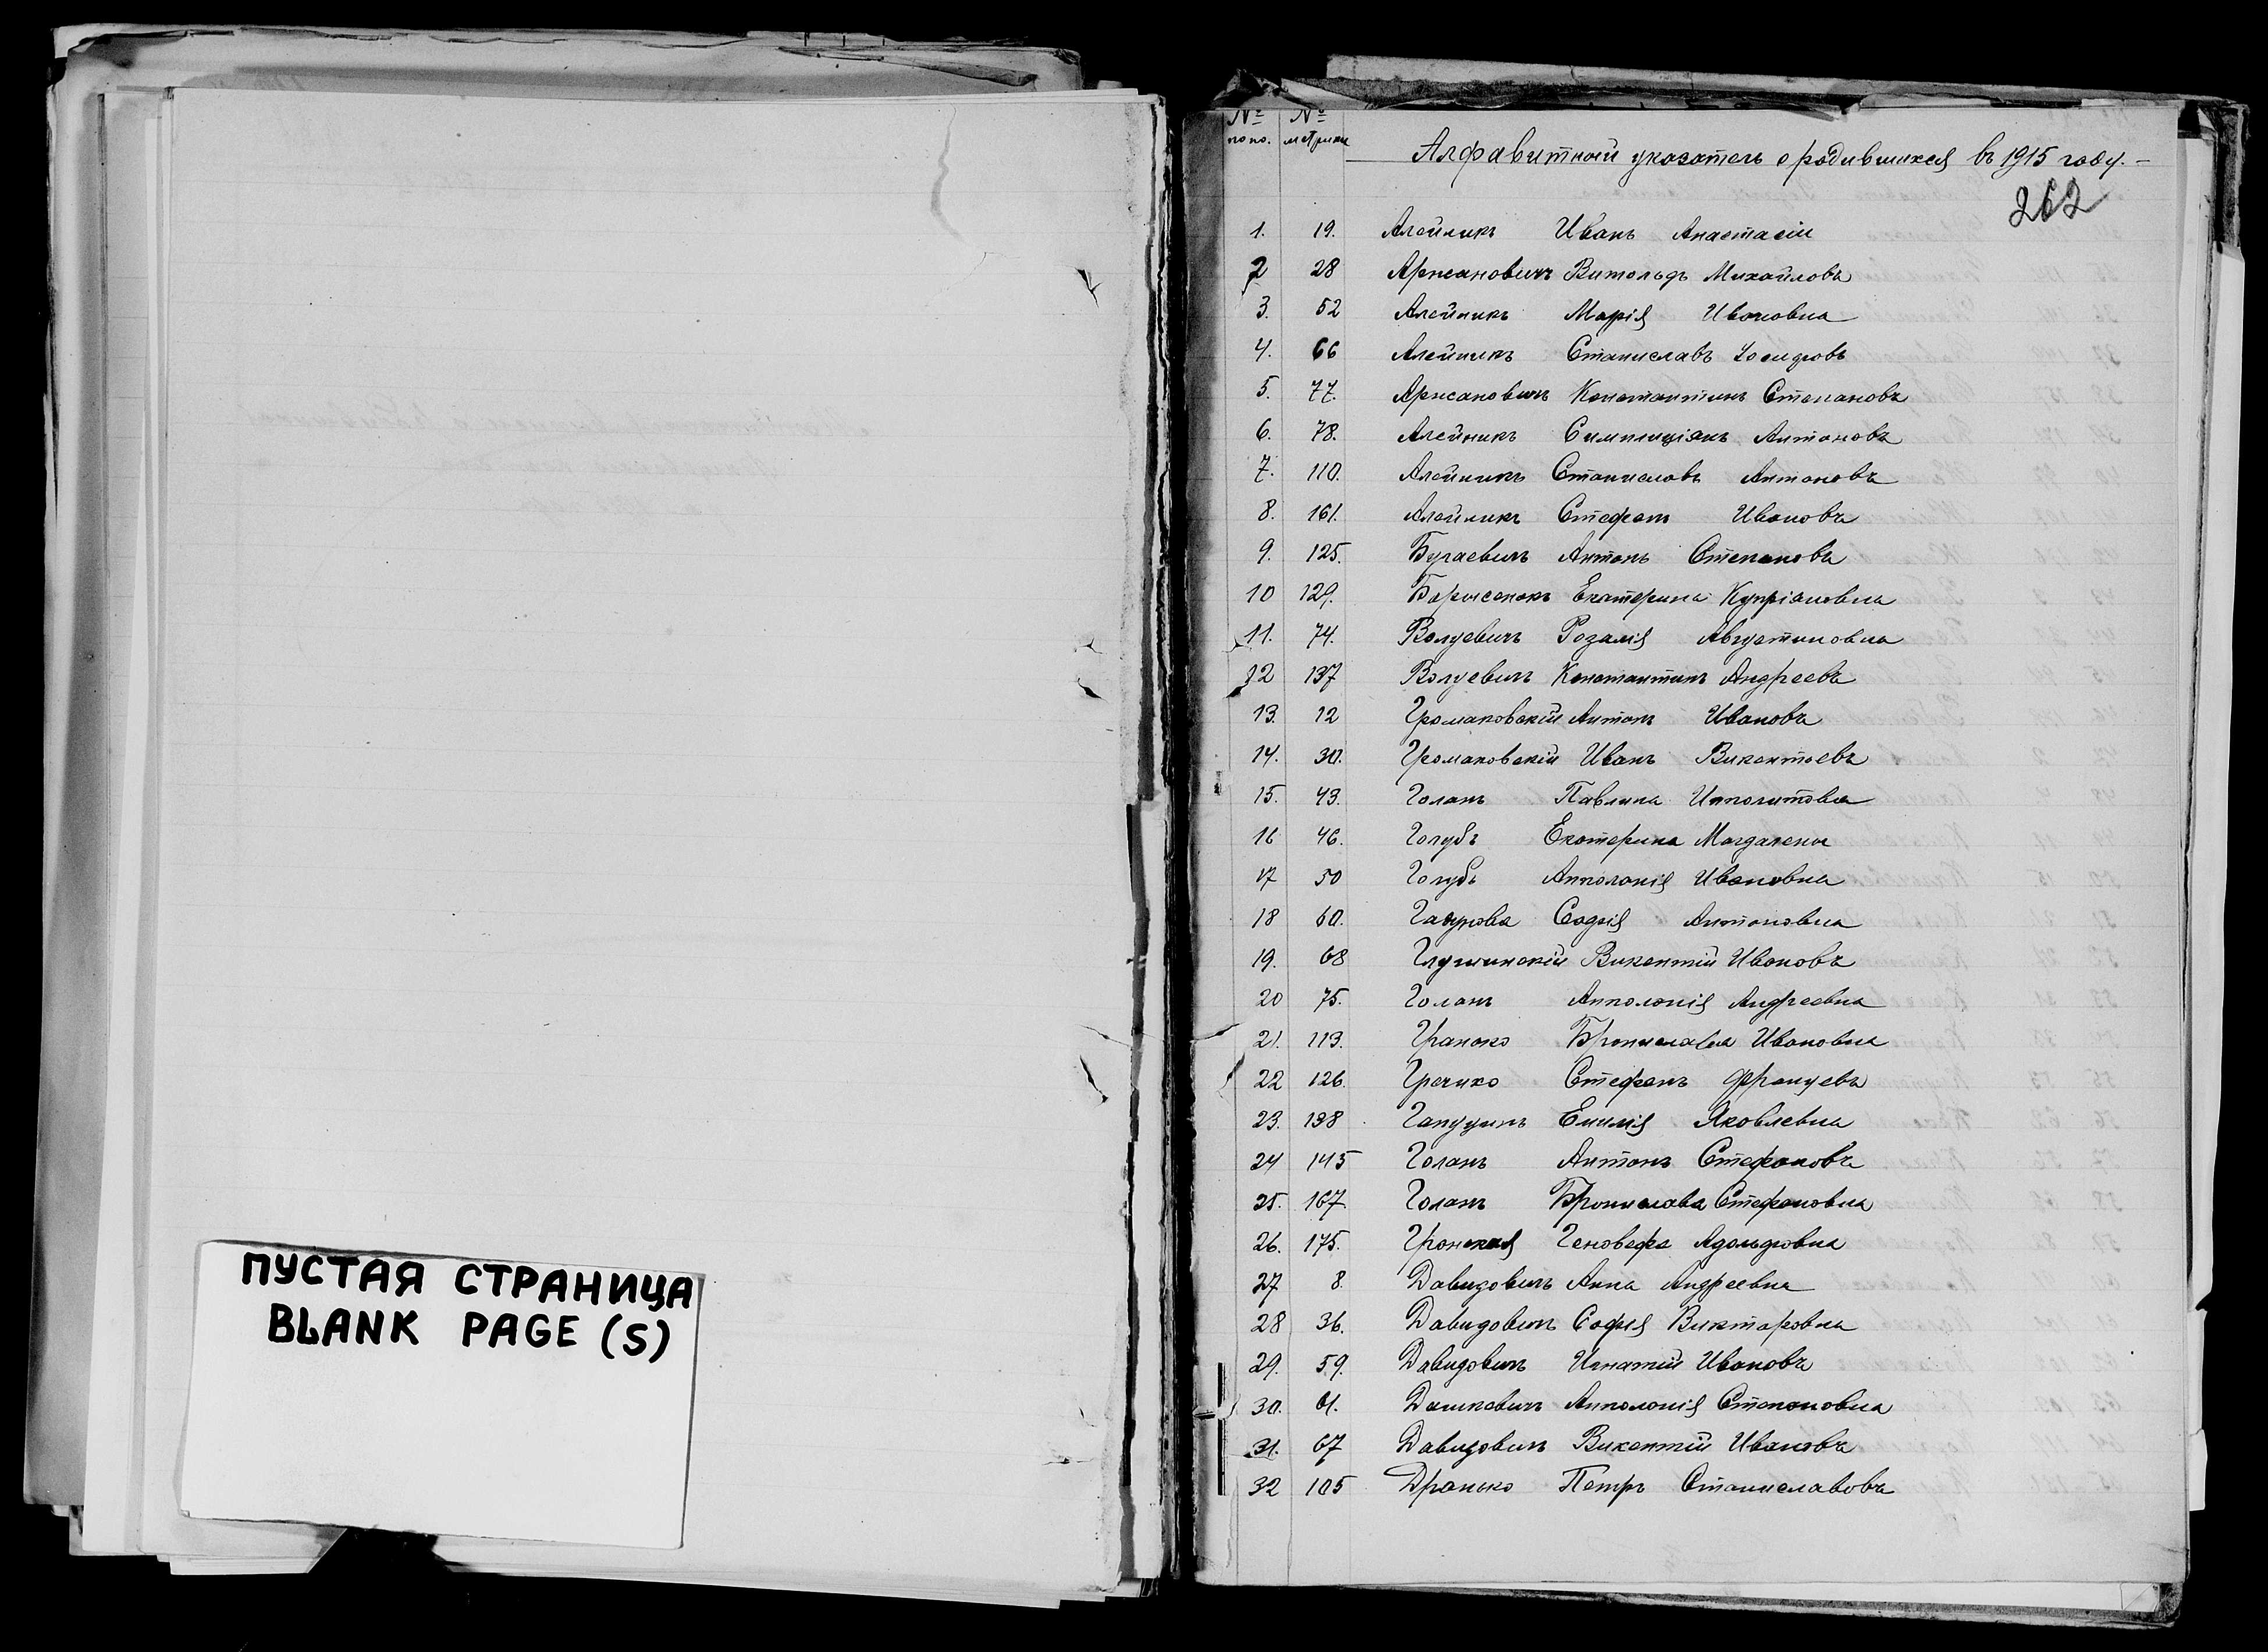 ПУСТАЯ СТРАНИЦА
BLANK PAGE (S)
№ по по. № метрики
Алфавитный указатель о родившихся въ 1915 году.
262
1. 19. Алейникъ Иванъ Анастасіи
2 28 Аржановичъ Витольдъ Михайловъ
3. 52 Алейникъ Марія Ивановна
4. 66 Алейникъ Станиславъ Іосифовъ
5. 77. Аржановичъ Константинъ Степановъ
6. 78. Алейникъ Симплиціанъ Антоновъ
7. 110. Алейникъ Станиславъ Антоновъ
8. 161. Алейникъ Стефанъ Ивановъ
9. 125. Бугаевичъ Антонъ Степановъ
10 129. Борисенокъ Екатерина Купріановна
11. 74. Волуевичъ Розалія Августиновна
12 137 Волуевичъ Константинъ Андреевъ
13. 12 Громаковскій Антонъ Ивановъ
14. 30. Громаковскій Иванъ Викентьевъ
15. 43. Голанъ Павлина Ипполитовна
16 46. Голубъ Екатерина Магдалены
17 50 Голубъ Апполонія Ивановна
18 60. Софія Антоновна
19. 68 Глушинскій Викентій Ивановъ
20 75. Голанъ Апполонія Андреевна
21. 113. Гранько Бронислава Ивановна
22 126. Гречихо Стефанъ Францевъ
23. 138 Емилія Яковлевна
24 145 Голанъ Антонъ Стефановъ
25. 167 Голанъ Бронислава Стефановна
26. 175. Гронская Геновефа Адольфовна
27 8. Давидовичъ Анна Андреевна
28 36. Давидовичъ Софія Викторовна
29. 59. Давидовичъ Игнатій Ивановъ
30. 61. Дашкевичъ Апполонія Степановна
31. 67 Давидовичъ Викентій Ивановъ
32 105 Дранько Петръ Станиславовъ